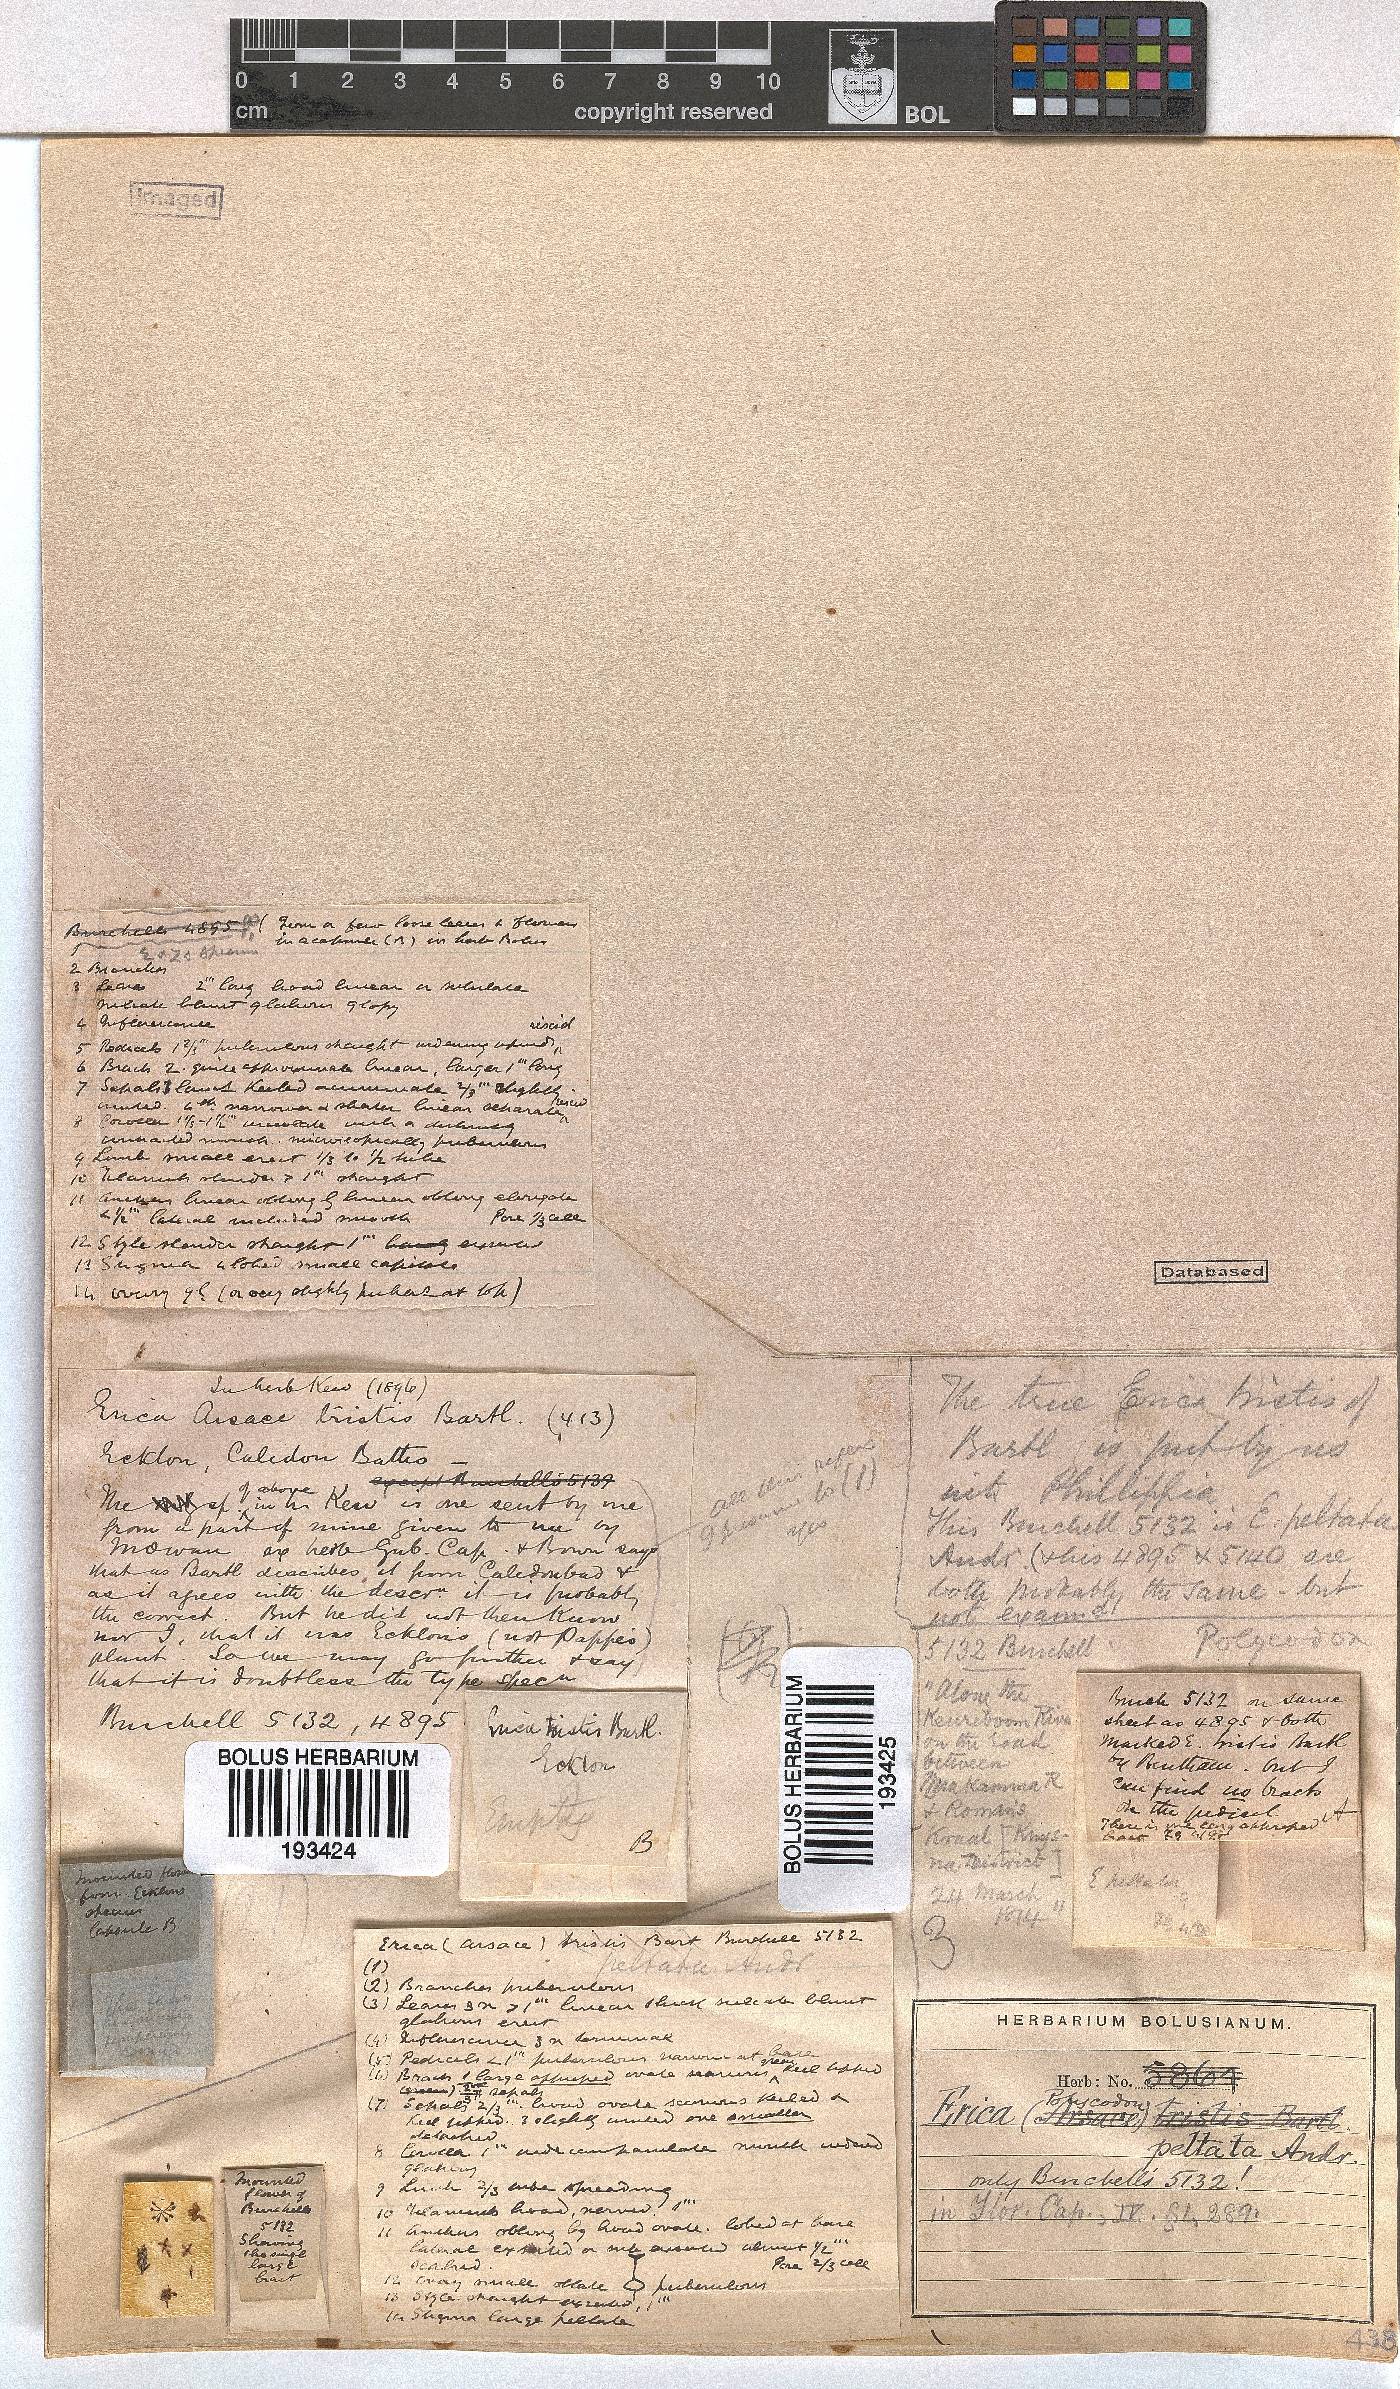 0 1 2 3 4 5 6 7 8 9 10
cm copyright reserved BOL
Imaged
Burchells 4895 (From a few loose leaves & flowers
in a capsule (B) in herb Bolus
1
2 Branches
3 Leaves 2''' long broad linear or subulate
sulcate blunt glabrous glossy
4 Inflorescence viscid
5 Pedicels 1 2/3''' puberulous straight
6 Bracts 2. quite approximate linear, larger 1''' long
7 Sepals 3 lanct keeled acuminate 2/3''' slightly
united. 4th narrower & shorter linear separate, viscid
8 Corolla 1 1/3 - 1 1/2''' with a
mouth. microscopically puberulous
9 Limb small erect 1/3 to 1/2 tube
10 Filaments slender > 1''' straight
11 Anthers linear oblong linear oblong elongate
< 1/2''' lateral included smooth Pore 1/3 cell
12 Style slender straight 1''' exserted
13 Stigma 4 lobed small capitate
14 Ovary (or very slightly puber at top)
Databased
In herb Kew (1896)
Erica Arsace tristis Bartl. (413)
Ecklon, Caledon Baths —
except Burchells 5139
The sp. of above in hb Kew is one sent by me
from a part of mine given to me by
McOwan ex herb Gub. Cap. & Brown says
that as Bartl describes it from Caledonbad &
as it agrees with the descrn it is probably
the correct. But he did not then know
nor I, that it was Ecklon's (not Pappe's)
plant. So we may go further & say
that it is doubtless the type specn
Burchell 5132, 4895
all this refers
to (1)
The true Erica tristis of
Bartl is put by us
into Philippia
This Burchell 5132 is E. peltata
Andr (& his 4895 & 5140 are
both probably the same - but
not examd
5132 Burchell. Polycodon
"Along the
Keureboom River
on the road
between
Makamma R
& Romans
Kraal [Knys-
na District]
24 March
1814"
3
Burch 5132 on same
sheet as 4895 & both
marked E. tristis Bartl
by Bentham. but I
can find no bracts
on the pedicel A
There is one long appressed
bract
E peltata
Erica tristis Bartl.
Ecklon
B
BOLUS HERBARIUM
193424
BOLUS HERBARIUM
193425
Mounted flower
from Ecklons
specimen
Capsule B
Erica (Arsace) tristis Bart Burchell 5132
peltata Andr
(1)
(2) Branches puberulous
(3) Leaves 3n > 1''' linear thick sulcate blunt
glabrous erect
(4) Inflorescence 3n terminal
(5) Pedicels < 1''' puberulous narrow at base
(6) Bract 1 large appressed ovate scarious green keel tipped
sepals
(7) Sepals 2/3''' broad ovate scarious keeled &
keel tipped. 3 slightly united one smaller
detached
8 Corolla 1''' wide campanulate mouth widened
glabrous
9 Limb 2/3 tube spreading
10 Filaments broad, nerved. 1'''
11 Anthers oblong by broad ovate. lobed at base
lateral exserted or sub exserted almost 1/2'''
scabrid. Pore 2/3 cell
12 Ovary small oblate puberulous
13 Style straight exserted, 1'''
14 Stigma large peltate
Mounted
flower of
Burchells
5132
Showing
the single
large
bract
HERBARIUM BOLUSIANUM.
Herb: No. 5864
Erica (Arsace) Polycodon tristis Bartl.
peltata Andr.
only Burchells 5132!
in Flor. Cap. IV. §1, 289.
438